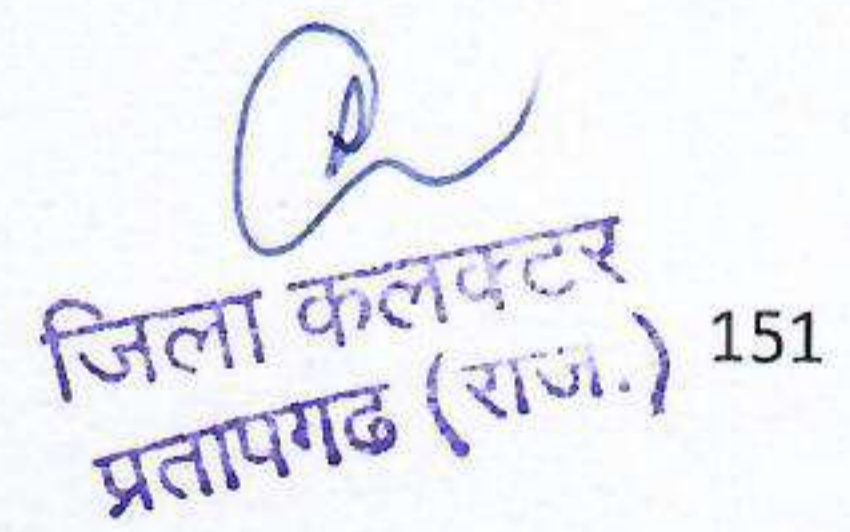 जिला कलक्टर
प्रतापगढ (राज.) 151